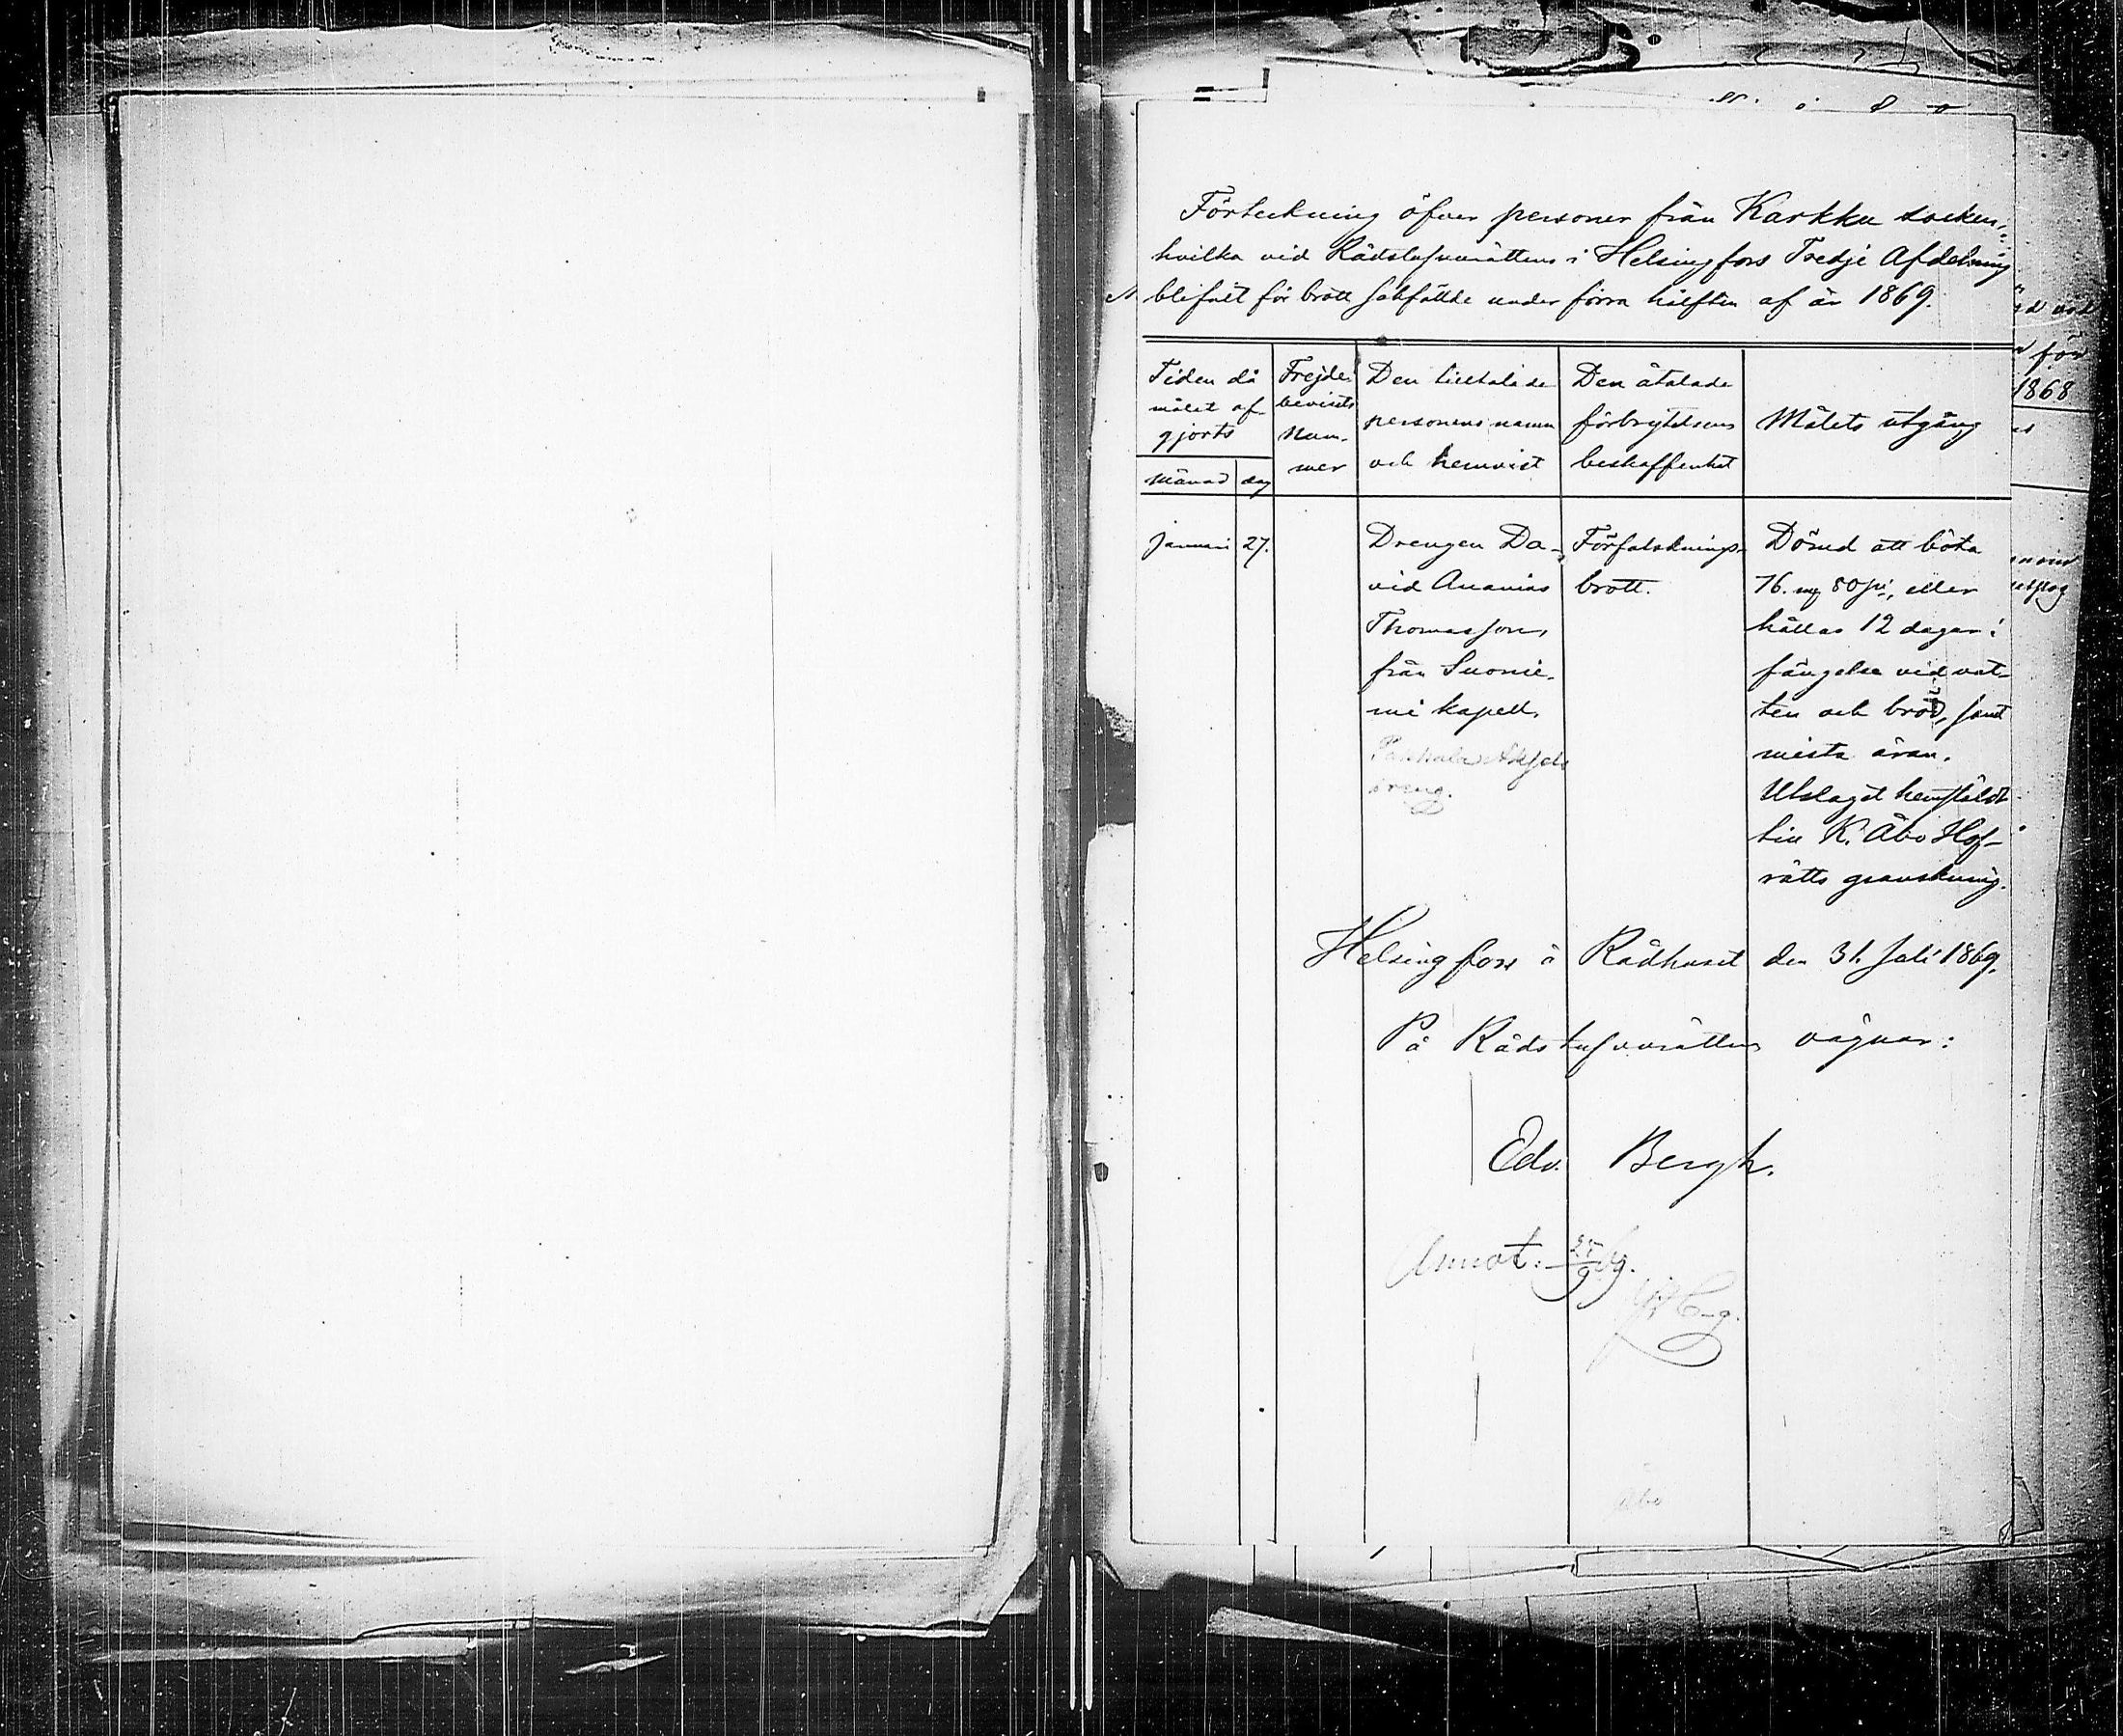 Förteckning öfver personer från Karkku socken,
hvilka vid Rådstufvurättens i Helsingfors Tredje Afdelning
blifvit för brott sakfällde under förra hälften af år 1869.
Tiden då målet afgjorts
Frejdebevisets Nummer
Den tilltalade personens namn och hemvist
Den åtalade förbrytelsens beskaffenhet
Målets utgång
Månad dag
Januari 27. Drengen Da- Förfalsknings- Dömd att böta
vid Ananias brott. 76. mk 80 pi, eller
Thomasson, hållas 12 dagar i
från Suonie- fängelse vid vat-
mi kapell. ten och bröd, samt
mista äran.
dreng. Utslaget hemstäldt
till K. Åbo Hof-
rätts granskning.
Helsingfors å Rådhuset den 31 Juli 1869.
På Rådstufvurättens vägnar:
Edv. Bergh.
Annot. 25/9 69.
Åbo
d vid
för
1868